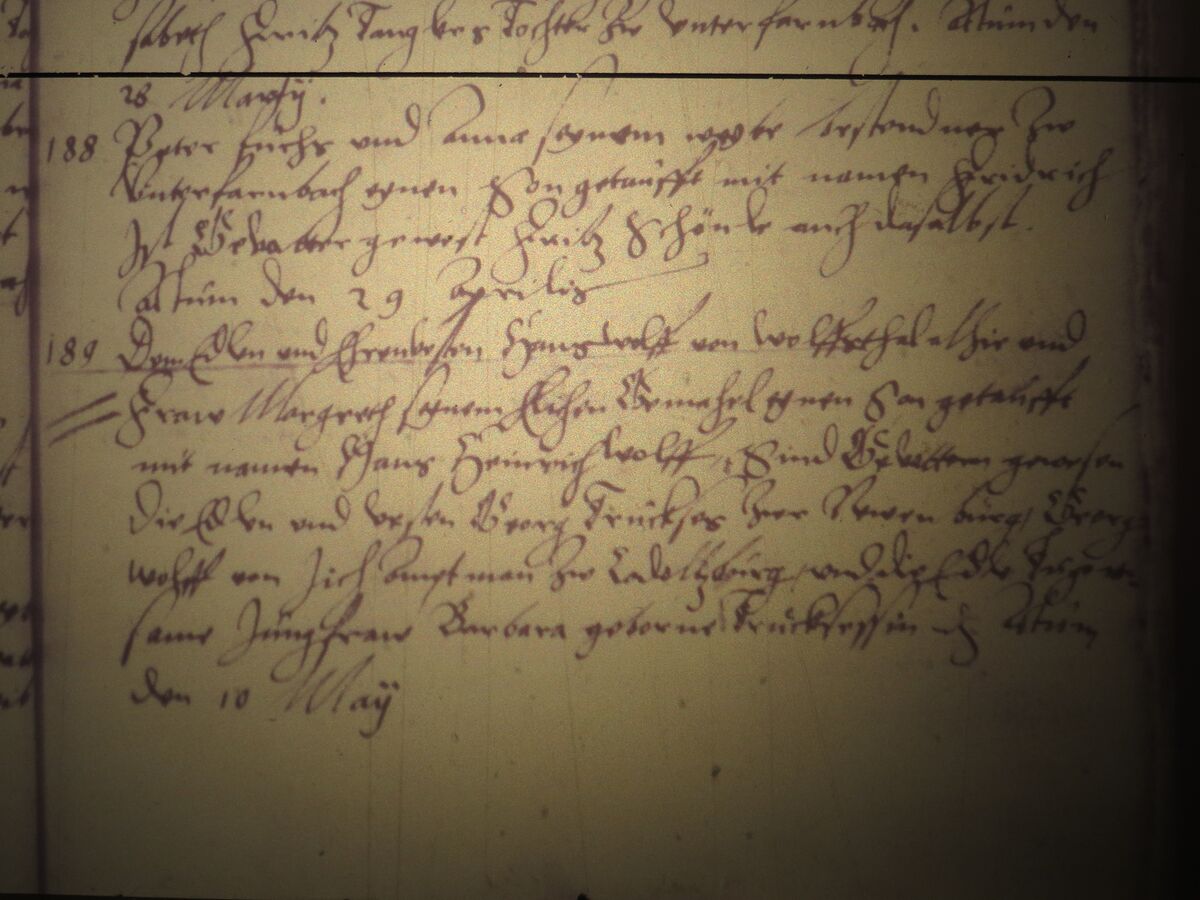 sabeth Fritz Tang Tochter zw Unterfarnbach. Actum den
28 Martij.
188 Peter fuchs und Anna seynem weybe bestendner zw
Unterfarnbach eynen Son getaufft mit namen Fridrich
Ist Gevatter gewest Fritz Schönle auch daselbst.
Actum den 29 Aprilis
189 Dem Edlen und Ehrenvesten Hans wolff von wolffsthal alhie und
Fraw Margreth seynem Elichen Gemahel eynen Son getaufft
mit namen Hans Heinrich wolff, Sind Gevattern gewesen
Die Edlen und vesten Georg Truckses zur Newen burg, Georg
wolff von Amptman zw Cadoltzburg, und die Edle Tugent
same Jungfraw Barbara geborne Trucksessin Actum
den 10 Maÿ